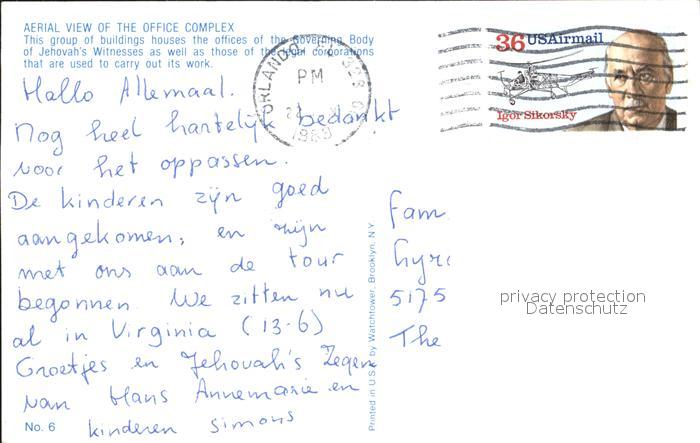 AERIAL VIEW OF THE OFFICE COMPLEX
This group of buildings houses the offices of the Governing Body
of Jehovah's Witnesses as well as those of the legal corporations
that are used to carry out its work.
Hallo Allemaal.
Nog heel hartelijk bedankt
voor het oppassen.
De kinderen zijn goed
aangekomen, en zijn
met ons aan de tour
begonnen. We zitten nu
al in Virginia (13-6)
Groetjes en Jehovah's Zegen
van Hans Annemarie en
kinderen Simons
No. 6
Printed in U.S. by Watchtower, Brooklyn, N.Y.
ORLANDO
PM
1989
36 USAirmail
Igor Sikorsky
Fam.
5175
The
privacy protection
Datenschutz